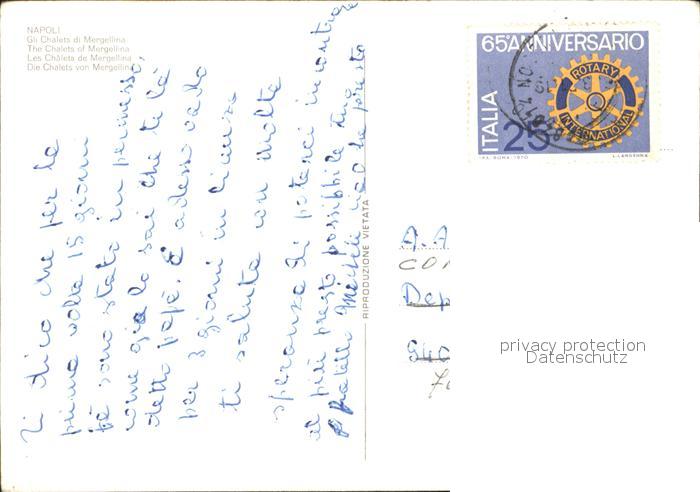 NAPOLI
Gli Chalets di Mergellina
The Chalets of Mergellina
Les Châlets de Mergellina
Die Chalets von Mergellina
Ti dico che per la
prima volta 15 giorni
fà sono stato in permesso,
come già lo sai che te l'à
detto papà. E adesso vado
per 3 giorni in licenza
ti saluto con molta
speranza di poterci incontrare
al più presto possibbile tuo
fratello Michele ciao a presto
RIPRODUZIONE VIETATA
65°ANNIVERSARIO
ITALIA
25
ROTARY
INTERNATIONAL
I.P.S. ROMA 1970
A.A
CO
Dep
840
privacy protection
Datenschutz